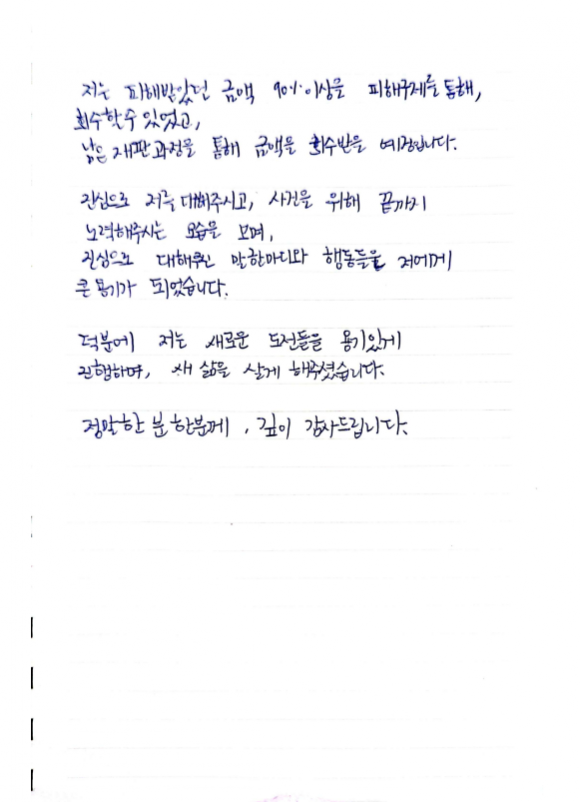 저는 피해받았던 금액 90% 이상을 피해구제를 통해,
회수할 수 있었고,
남은 재판 과정을 통해 금액을 회수받을 예정입니다.
진심으로 저를 대해주시고, 사건을 위해 끝까지
노력해주시는 모습을 보며,
진심으로 대해주신 말한마디와 행동들을 저에게
큰 용기가 되었습니다.
덕분에 저는 새로운 도전들을 용기있게
진행하며, 새 삶을 살게 해주셨습니다.
정말 한 분 한분께, 깊이 감사드립니다.